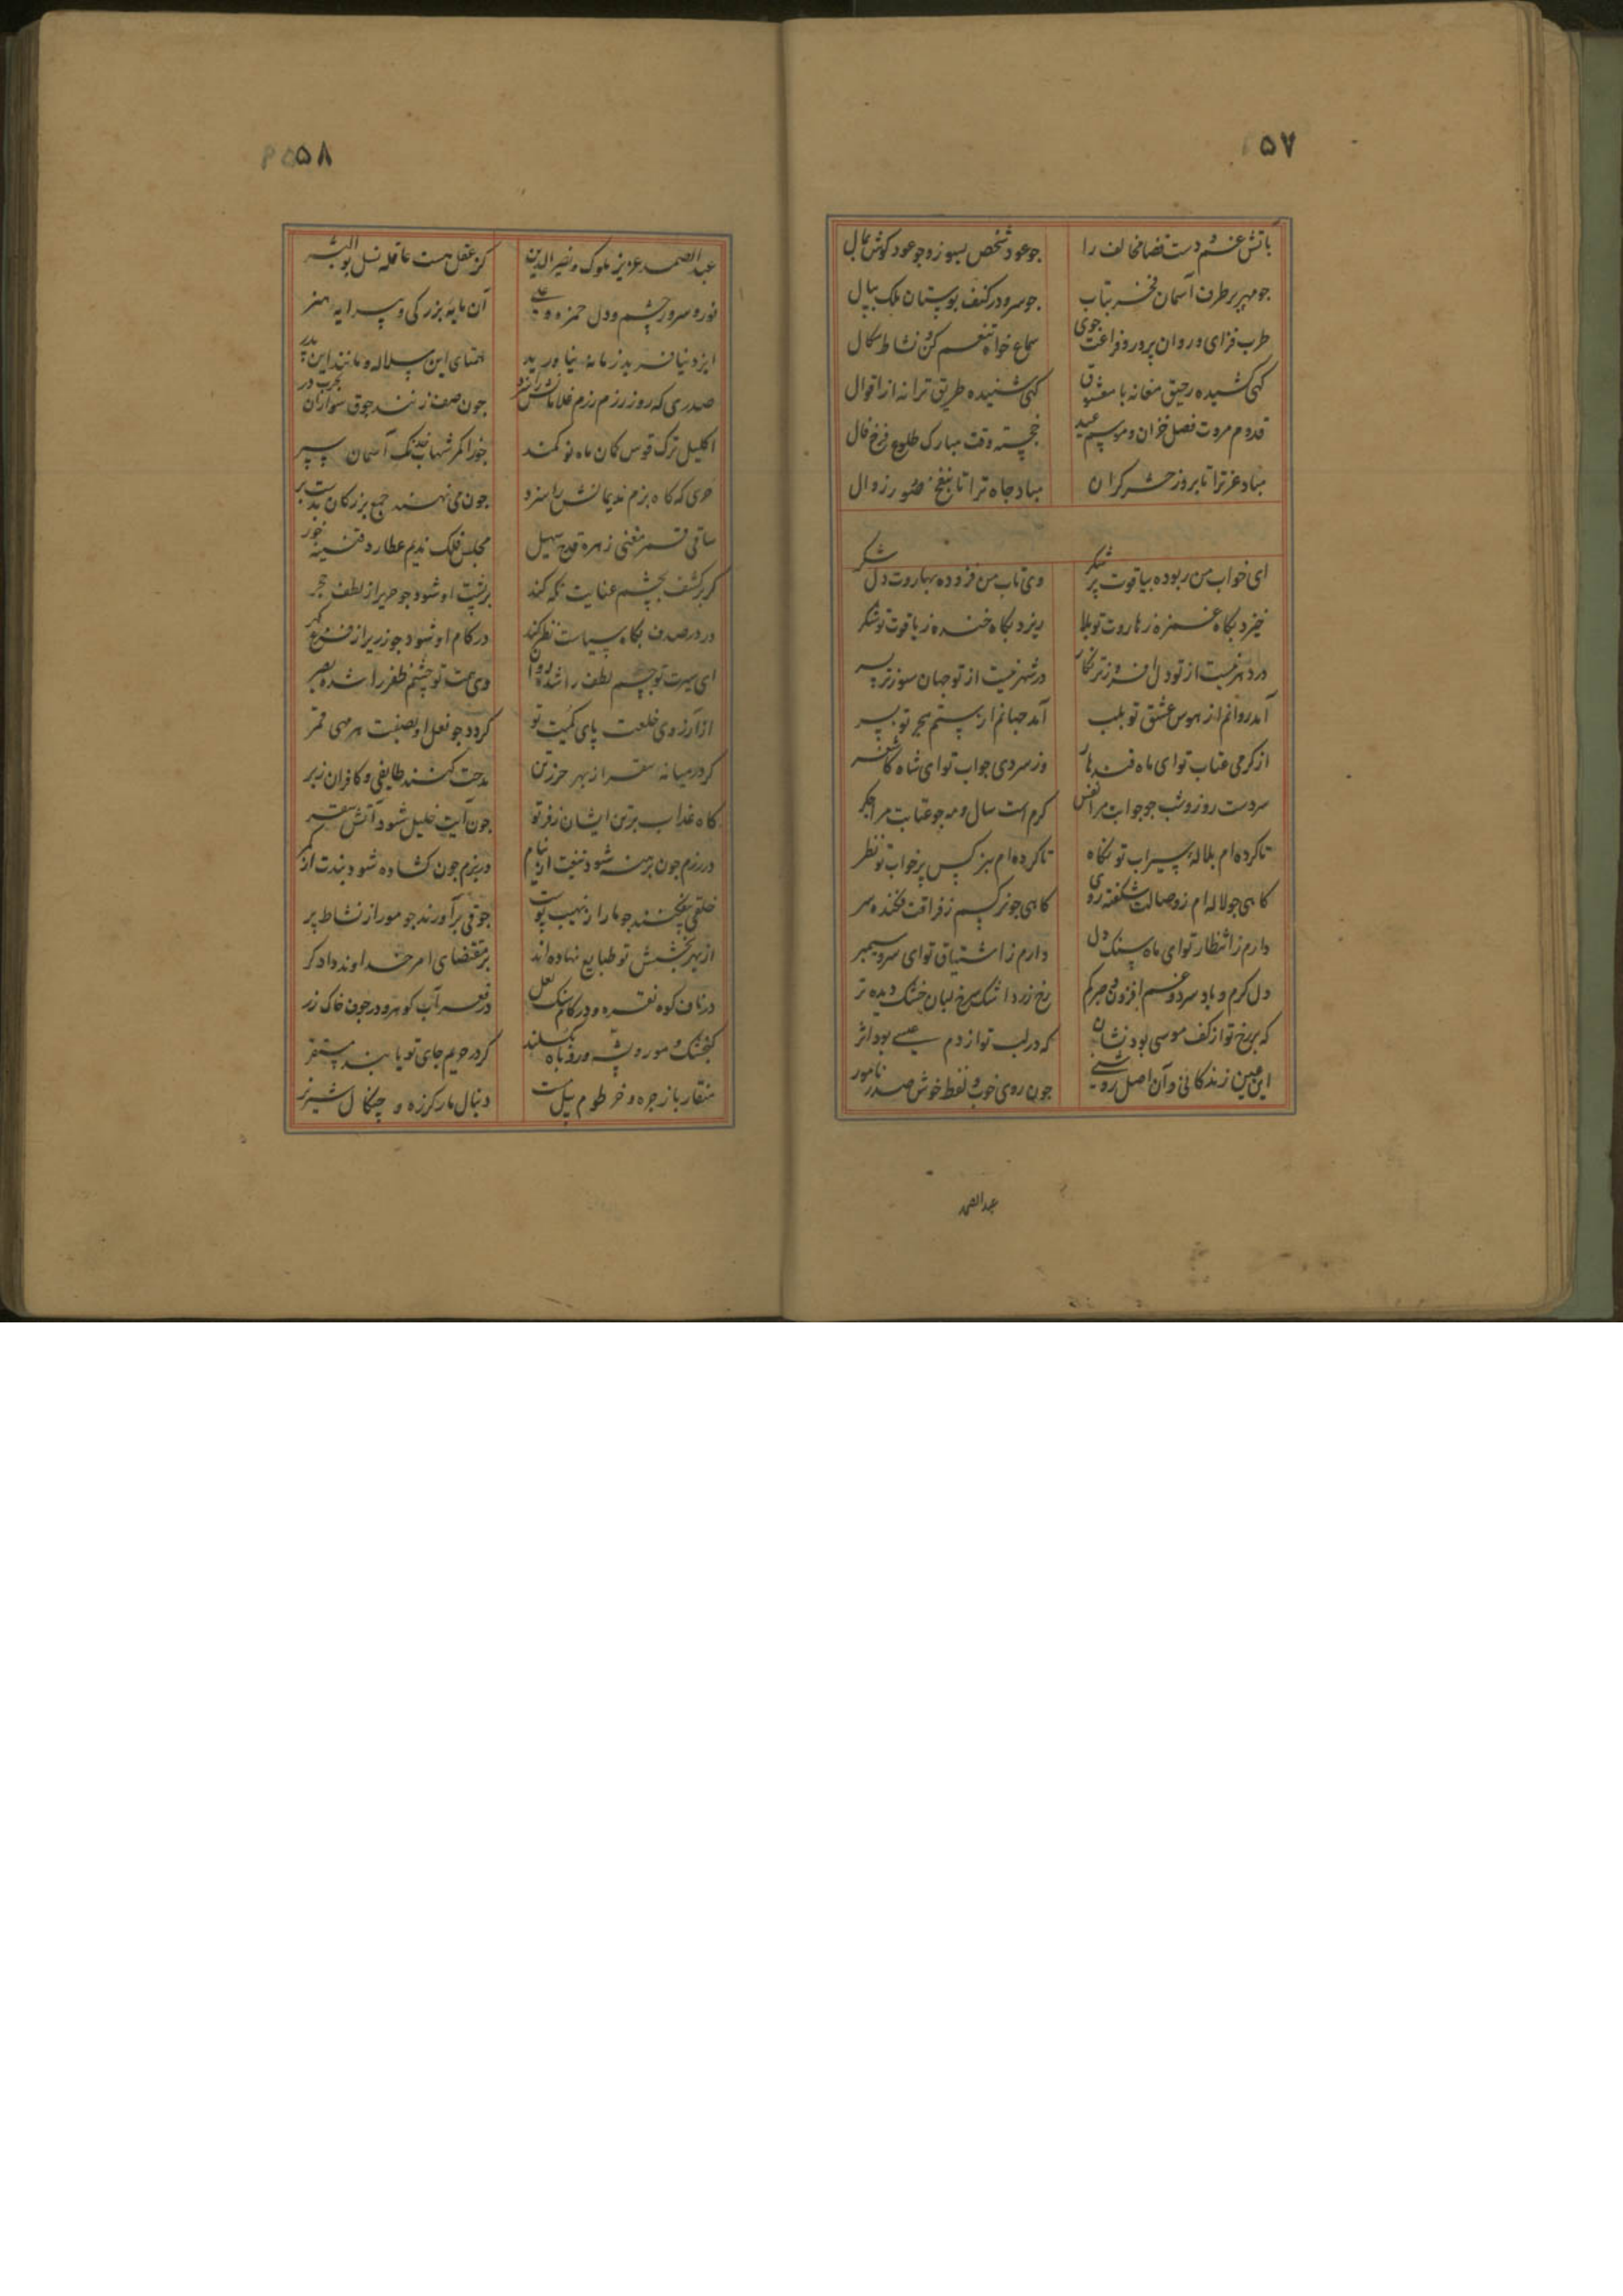 ۵۷
بآتش غم و دست قضا مخالف را
جو عود شخص بسوز و جو عود کوش بمال
جو مهر بر طرف آسمان فخر بتاب
جو سرو در کنف بوستان ملک ببال
طرب فزای و روان پرور و فراغت جوی
سماع خواه و تنعم کن و نشاط سکال
کهی کشیده رحیق مغانه با معشوق
کهی شنیده طریق ترانه از اقوال
قدوم مروت فصل خزان و موسم عید
خجسته وقت مبارک طلوع فرخ فال
مباد عز ترا تا بروز حشر کران
مباد جاه ترا تا بنفخ صور زوال
ای خواب من ربوده بیاقوت پر شکر
وی تاب من فزوده بهاروت دل شکر
خیزد بکاه غمزه ز هاروت تو بلا
ریزد بکاه خنده ز یاقوت تو شکر
در دهر نیست از تو دل افروزتر نکار
در شهر نیست از تو جهان سوزتر پسر
آمد روانم از هوس عشق تو بلب
آمد جهانم از ستم هجر تو بسر
از کرمی عتاب تو ای ماه قندهار
وز سردی جواب تو ای شاه کاشغر
سردست روز و شب جو جوابت مرا نفس
کرم است سال و مه جو عتابت مرا جکر
تا کرده‌ام بلالهٔ سیراب تو نکاه
تا کرده‌ام بنرکس پر خواب تو نظر
کاهی جو لاله ام ز وصالت شکفته روی
کاهی جو نرکسم ز فراقت فکنده سر
دارم ز انتظار تو ای ماه سنک دل
دارم ز اشتیاق تو ای سرو سیمبر
دل کرم و باد سرد و غم افزون و صبر کم
رخ زرد و اشک سرخ و لبان خشک و دیده تر
که بر رخ تو از کف موسی بود نشان
که در لب تو از دم عیسی بود اثر
این عین زندکانی و آن اصل روشنی
چون روی خوب و لفظ خوش صدر نامور
عبدالصمد
۵۸
عبدالصمد عزیز ملوک و نصیر الدین
کز عقل هست عاقله نسل بوالبشر
نور و سرور چشم و دل حمزه و علی
آن مایه بزرکی و پیرایه هنر
ایزد نیافرید زمانه نیاورید
همتای این سلاله و مانند این پدر
صدری که روز رزم غلامانش را سزد
جون صف زنند جوق سواران بحرب در
اکلیل ترک قوس کمان ماه نو کمند
جوزا کمر شهاب خدنک آسمان سپر
حری که کاه بزم ندیمانش را سزد
جون می نهند جمع بزرکان بدست بر
ساقی قمر مغنی زهره قدح سهیل
مجلس فلک ندیم عطارد قنینه خور
کر بر کشف بچشم عنایت نکه کند
بر پشت او شود جو حریر از لطف حجر
ور در صدف بکاه سیاست نظر کند
در کام او شود جو زریر از فزع کهر
ای سیرت تو جسم لطف را شده روان
وی همت تو چشم ظفر را شده بصر
از آرزوی خلعت پای کمیت تو
کردد جو نعل او بصفت هر مهی قمر
کر در میانه سقر از بهر حرز تن
مدحت کنند طایفی و کافران زبر
کاه عذاب بر تن ایشان ز فر تو
جون آیت خلیل شود آتش سقر
در رزم جون برهنه شود تیغت از نیام
در بزم جون کشاده شود بندت از کمر
خلقی بیفکنند جو مار از نهیب پوست
جوقی بر آورند جو مور از نشاط پر
از بهر بخشش تو طبایع نهاده اند
بر مقتضای امر خداوند دادکر
در ناف کوه نقره و در کام سنک لعل
در قعر آب کوهر و در جوف خاک زر
کنجشک و مور و پشه و روباه بکسلند
کر در حریم جای تو یابند مستقر
منقار باز جره و خرطوم پیل مست
دنبال مار کرزه و چنکال شیر نر